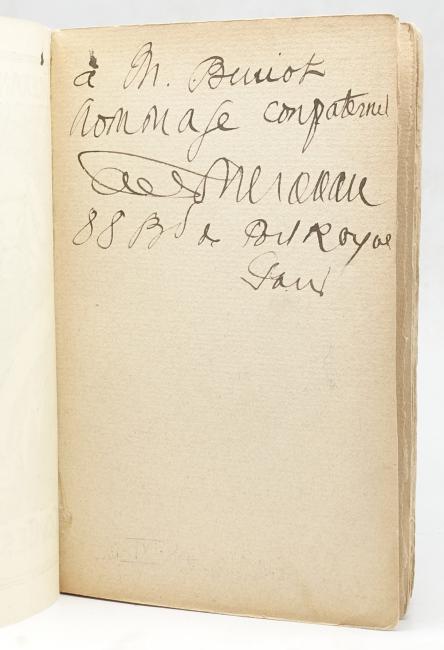 à M. Beniot
hommage confraternel
88 Bd de Port Royal
Paris